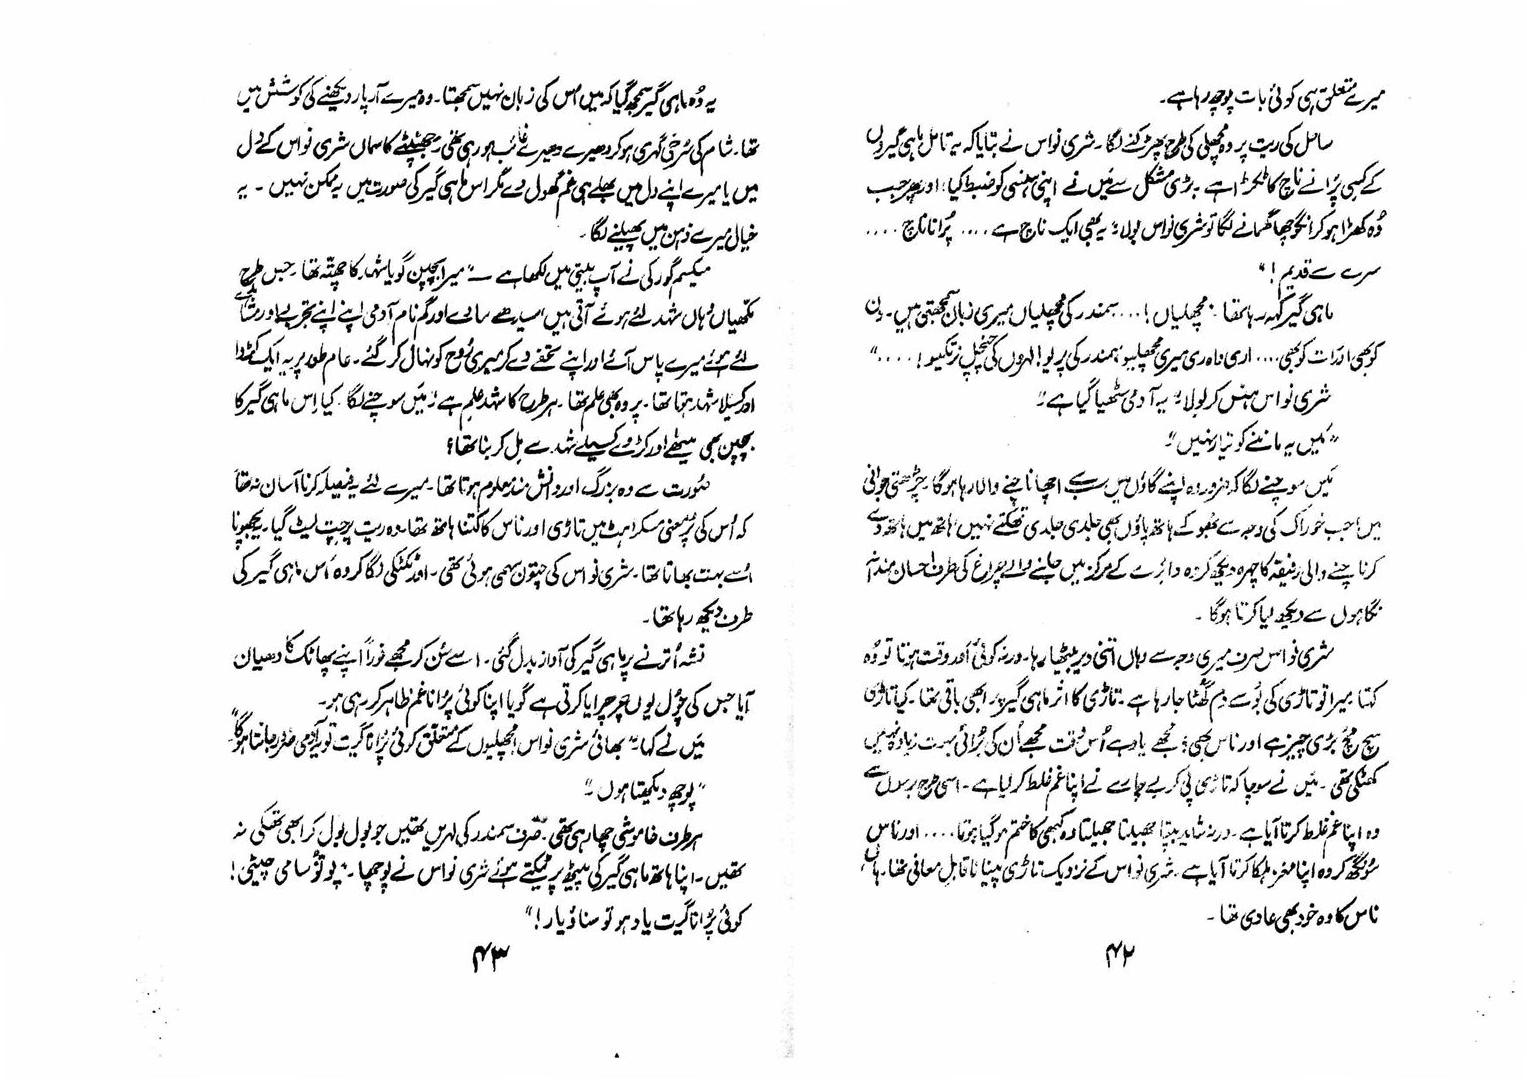 میرے متعلق ہی کوئی بات پوچھ رہا ہے۔
ساحل کی ریت پر وہ مچھلی کی طرح پھڑکنے لگا۔ شری نواس نے بتایا کہ یہ تامل ماہی گیروں
کے کسی پرانے ناچ کا ٹکڑا ہے۔ بڑی مشکل سے میں نے اپنی ہنسی کو ضبط کیا؛ اور پھر جب
وُہ کھڑا ہو کر انگوچھا گھمانے لگا تو شری نواس بولا؛ "یہ بھی ایک ناچ ہے .... پُرانا ناچ ....
سرے سے قدیم!"
ماہی گیر کہہ رہا تھا۔ "مچھلیاں! ... سمندر کی مچھلیاں میری زبان سمجھتی ہیں۔ دِن
کو بھی اور رات کو بھی .... اری واہ ری میری مچھلیو، سمندر کی پریو! لہروں کی چنچل نرتکیو! ...."
شری نواس ہنس کر بولا؛ "یہ آدمی سٹھیا گیا ہے"
"میں یہ ماننے کو تیار نہیں"
میں سوچنے لگا کہ ضرور وہ اپنے گاؤں میں سب سے اچھا ناچنے والا رہا ہوگا۔ چڑھتی جوانی
میں جب خوراک کی وجہ سے بھوکے ہاتھ پاؤں بھی جلدی جلدی تھکتے نہیں، ہاتھ میں ہاتھ دے
کر ناچنے والی رفیقہ کا چہرہ دیکھ کر وہ دائرے کے مرکز میں جلنے والے چراغ کی طرف احسان مندانہ
نگاہوں سے دیکھ لیا کرتا ہوگا۔
شری نواس صرف میری وجہ سے وہاں اتنی دیر بیٹھا رہا۔ ورنہ کوئی اور وقت ہوتا تو وُہ
کہتا میرا تو تاڑی کی بُو سے دم گھٹا جا رہا ہے۔ تاڑی کا اثر ماہی گیر پر ابھی باقی تھا۔ کیا تاڑی
سچ مچ بڑی چیز ہے اور ناس بھی؛ مجھے یاد ہے اُس وقت مجھے اُن کی بُرائی بہت زیادہ نہیں
کھٹکی تھی۔ میں نے سوچا کہ تاڑی پی کر بے چارے نے اپنا غم غلط کر لیا ہے۔ اسی طرح برسوں سے
وہ اپنا غم غلط کرتا آیا ہے۔ ورنہ شاید بپتا جھیلتا جھیلتا وہ کبھی کا ختم ہو گیا ہوتا .... اور ناس
سُونگھ کر وہ اپنا مغز ہلکا کرتا آیا ہے۔ شری نواس کے نزدیک تاڑی پینا ناقابلِ معافی تھا۔ ہاں
ناس کا وہ خود بھی عادی تھا۔
۴۲
یہ وُہ ماہی گیر سمجھ گیا کہ میں اس کی زبان نہیں سمجھتا۔ وہ میرے آر پار دیکھنے کی کوشش میں
تھا۔ شام کی سُرخی گہری ہو کر دھیرے دھیرے غائب ہو رہی تھی۔ جھٹپٹے کا سماں شری نواس کے دل
میں یا میرے اپنے دل میں بھلے ہی غم گھول دے مگر اس ماہی گیر کی صورت میں یہ ممکن نہیں۔ یہ
خیال میرے ذہن میں پھیلنے لگا۔
میکسم گورکی نے آپ بیتی میں لکھا ہے — "میرا بچپن گویا شہد کا چھتہ تھا۔ جس طرح
مکھیاں وُہاں شہد لئے ہوئے آتی ہیں، سیدھے سادے اور گم نام آدمی اپنے اپنے تجربے اور مشاہدے
لئے ہوئے میرے پاس آئے اور اپنے تحفے دے کر میری رُوح کو نہال کر گئے۔ عام طور پر یہ ایک کڑوا
اور کسیلا شہد ہوتا تھا۔ پر وہ بھی علم تھا۔ ہر طرح کا شہد علم ہے" میں سوچنے لگا۔ کیا اِس ماہی گیر کا
بچپن بھی میٹھے اور کڑوے کسیلے شہد سے مل کر بنا تھا؟
صُورت سے وہ بزرگ اور دانش مند معلوم ہوتا تھا۔ میرے لئے یہ فیصلہ کرنا آسان نہ تھا
کہ اُس کی پُر معنی مسکراہٹ میں تاڑی اور ناس کا کتنا ہاتھ تھا۔ وہ ریت پر چت لیٹ گیا۔ یہ بچھونا
اُسے بہت بھاتا تھا۔ شری نواس کی چتون سہمی ہوئی تھی۔ اور ٹکٹکی لگا کر وہ اُس ماہی گیر کی
طرف دیکھ رہا تھا۔
نشہ اُترنے پر ماہی گیر کی آواز بدل گئی۔ اسے سُن کر مجھے فوراً اپنے پھاٹک کا دھیان
آیا جس کی چُول یوں چرچرایا کرتی ہے گویا اپنا کوئی پُرانا غم ظاہر کر رہی ہو۔
میں نے کہا۔ "بھائی شری نواس! مچھلیوں کے متعلق کوئی پُرانا گیت تو یہ آدمی ضرور جانتا ہوگا"
"پوچھ دیکھتا ہوں"
ہر طرف خاموشی چھا رہی تھی۔ صرف سمندر کی لہریں تھیں جو بول بول کر ابھی تھکی نہ
تھیں۔ اپنا ہاتھ ماہی گیر کی پیٹھ پر ٹیکتے ہوئے شری نواس نے پوچھا۔ "پوتوُ سامی چیٹی!
کوئی پُرانا گیت یاد ہو تو سناؤ یار!"
۴۳